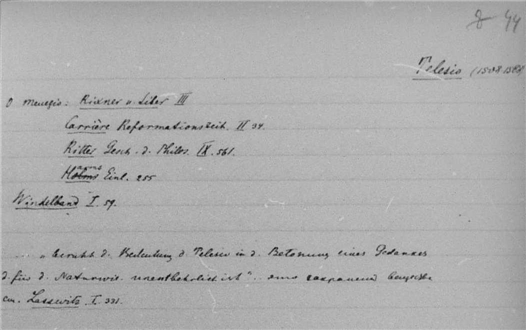 8 44
Telesio (1508-1588)
О телезіо: Rixner u. Siber III
Carrière Reformationszeit. II 34.
Ritter Gesch. d. Philos. IX. 561.
Einl. 255
Windelband I. 59.
„ beruht d. Bedeutung d. Telesio in d. Betonung eines Gedankes
d. für d. Naturwis. unentbehrlich ist"
см. Lasswitz I. 331.